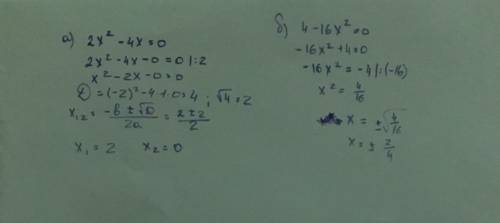 а) 2x² - 4x = 0
2x² - 4x - 0 = 0 | : 2
x² - 2x - 0 = 0
D = (-2)² - 4 + 0 = 4 ; √4 = 2
x₁,₂ = (-b ± √D)/2a = (2 ± 2)/2
x₁ = 2 x₂ = 0
б) 4 - 16x² = 0
-16x² + 4 = 0
-16x² = -4 | : (-16)
x² = 4/16
x = ±√(4/16)
x = ± 2/4